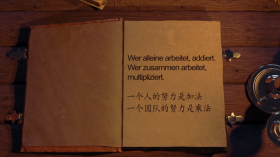 Wer alleine arbeitet, addiert.
Wer zusammen arbeitet,
multipliziert.
一个人的努力是加法
一个团队的努力是乘法